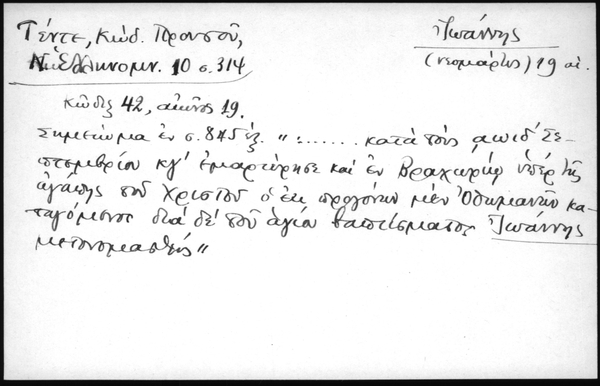 Γέντε, Κώδ. Προυσοῦ, Ἰωάννης
Ν. Ἑλληνομν. 10 σ. 314 (νεομάρτυς) 19 αἰ.
Κῶδιξ 42, αἰῶνος 19.
Σημείωμα ἐν σ. 845 ἑξ. „:...... κατὰ τοὺς αωιδ΄ Σε-
πτεμβρίου κγ΄ ἐμαρτύρησε καὶ ἐν Βραχωρίῳ ὑπὲρ τῆς
ἀγάπης τοῦ Χριστοῦ ὁ ἐκ προγόνων μὲν Ὀθωμανῶν κα-
ταγόμενος διὰ δὲ τοῦ ἁγίου βαπτίσματος Ἰωάννης
μετονομασθείς"